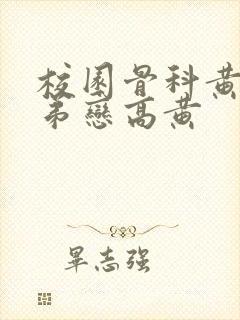 校園骨科黃
弟戀高黃
畢志强